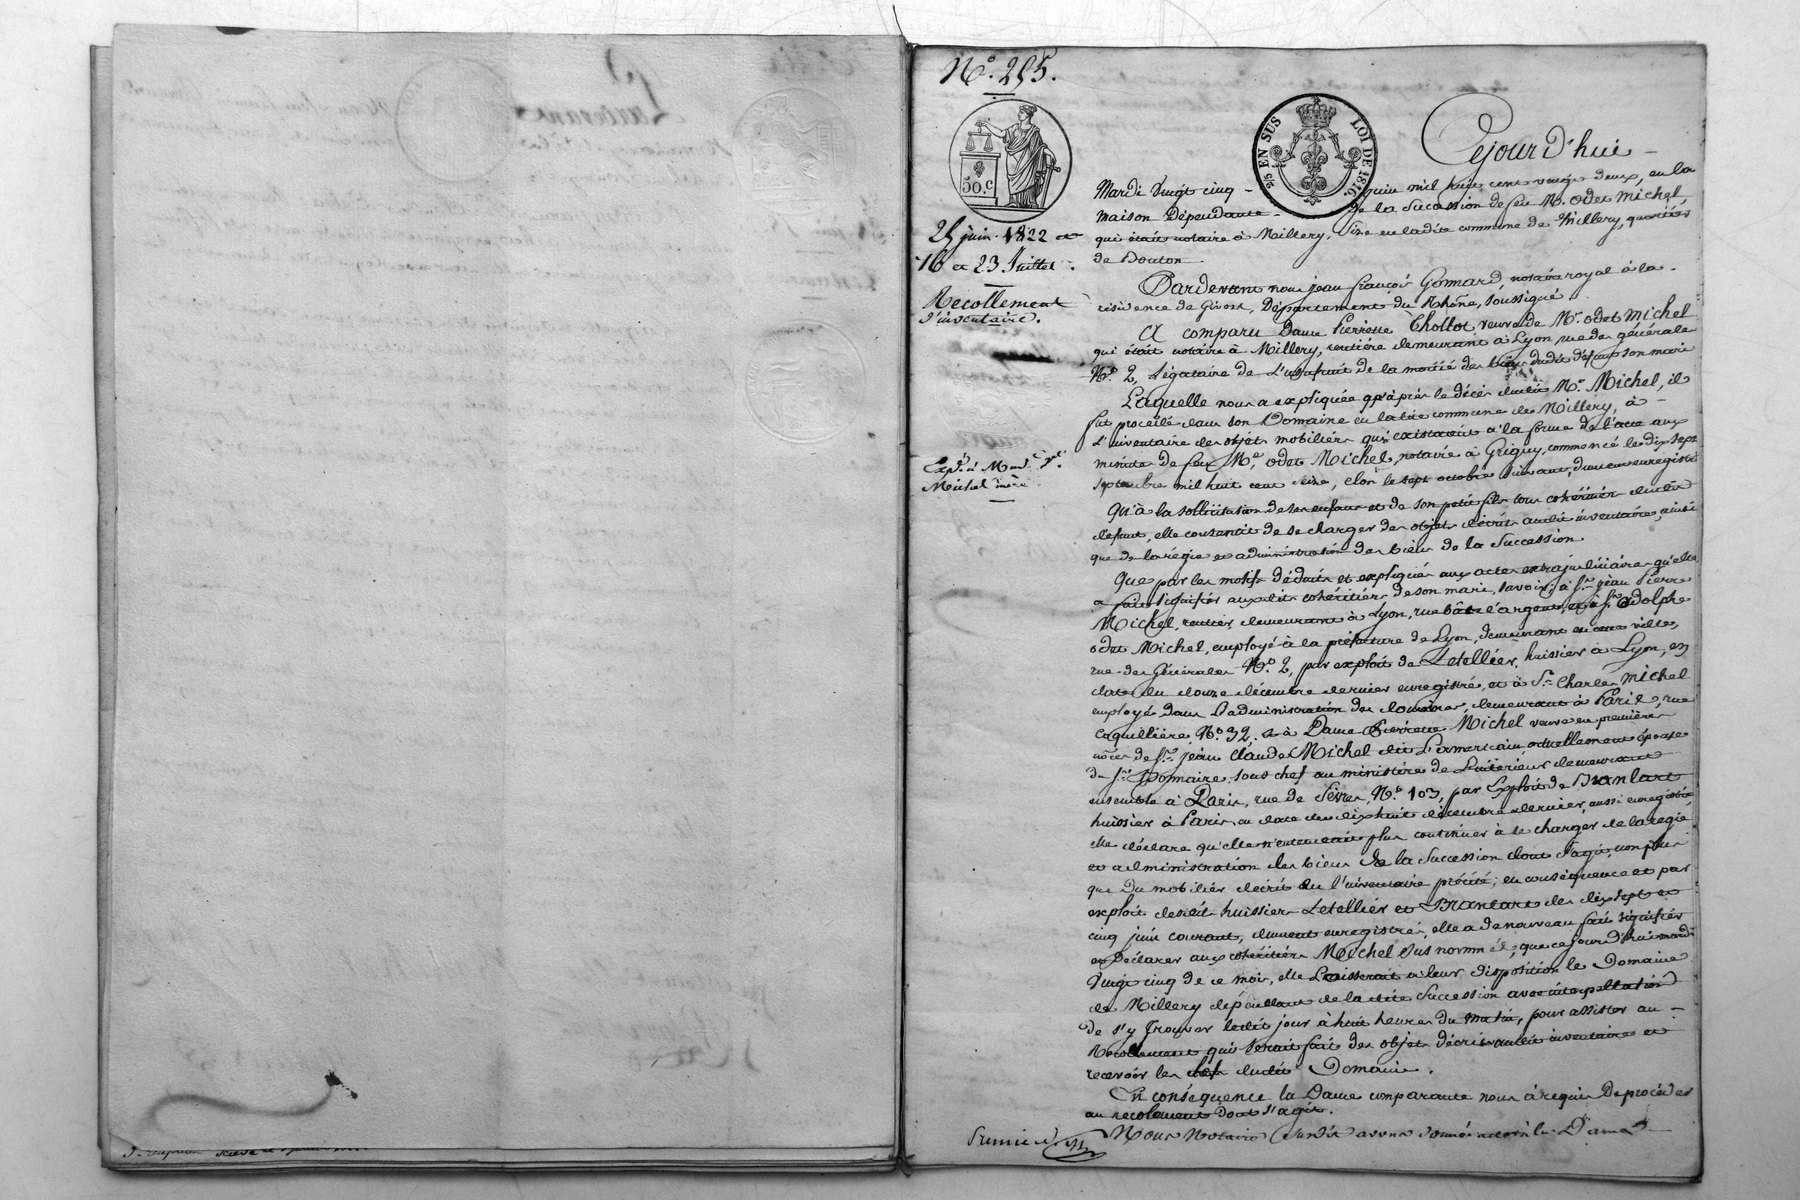 N.º 255.
50.c
2/5 EN SUS LOI DE 1816.
25 juin 1822 et
16 et 23 Juillet.
Recollement
d'inventaire.
Exp.
Michel mère
Cejourd'hui
Mardi Vingt cinq juin mil huit cent vingt deux, en la
maison Dépendante de la Succession de feu Mr. odet Michel,
qui était notaire à Millery, size en ladite commune de Millery, quartier
de Bouton
Pardevant nous jean françois Gomard, notaire royal à la
résidence de Givors, Département du Rhône, soussigné.
A comparu Dame Pierrette Thollot veuve de Mr. odet Michel
qui était notaire à Millery, rentière demeurant à Lyon, rue des générales
N.º 2, légataire de L'usufruit de la moitié des biens dudit défunt son mari
Laquelle nous a expliquée qu'après le décès dudit Mr. Michel, il
fut procédé dans son Domaine en ladite commune de Millery, à
L'inventaire des objets mobiliers qui existaient à la forme de l'acte aux
minutes de feu Me. odet Michel, notaire à Grigny, commencé le dix sept
septembre mil huit cent seize, clos le sept octobre suivant, dument enregistré
Qu'à la sollicitation de ses enfans et de son petit fils tous cohéritiers dudit
défunt, elle consentit de se charger des objets décrits audit inventaire, ainsi
que de la régie et administration des biens de la Succession.
Que par les motifs déduits et expliqués aux actes extrajudiciaires qu'elle
a fait signifier auxdits cohéritiers de son mari, savoir, à Sr. jean Pierre
Michel, rentier demeurant à Lyon, rue bât d'argent, et à Sr. adolphe
odet Michel, employé à la préfecture de Lyon, demeurant en cette ville,
rue des Générales N.º 2, par exploit de Letellier, huissier à Lyon, en
date du douze décembre dernier enregistré, et à Sr. Charles Michel
employé dans L'administration des douanes, demeurant à Paris, rue
Coquillière N.º 32. et à Dame Pierrette Michel veuve en premières
nôces de Sr. jean Claude Michel dit L'américain, actuellement épouse
du Sr. Domaire, sous chef au ministère de L'intérieur demeurant
ensemble à Paris, rue de Sèvres, N.º 103, par Exploit de Branlart
huissier à Paris, en date du dix huit décembre dernier, aussi enregistré,
elle déclare qu'elle n'entendait plus continuer à se charger de la régie
et administration des biens de la Succession dont s'agit, non plus
que du mobilier décrit en l'inventaire précité; en conséquence et par
exploit desdits huissiers Letellier et Branlart des dix sept et
cinq juin courant, dument enregistrés, elle a de nouveau fait signifier
et Déclarer aux cohéritiers Michel sus nommés, que cejourd'hui mardi
Vingt cinq de ce mois, elle Laisserait à leur disposition le Domaine
de Millery dépendant de ladite Succession avec interpellation
de s'y trouver ledit jour à huit heures du matin, pour assister au
Recollement qui serait fait des objets décrits audit inventaire et
recevoir les clefs dudit Domaine.
En conséquence la Dame comparante nous a requis De procéder
au recolement dont s'agit.
Nous Notaire susdit avons donné acte à la Dame